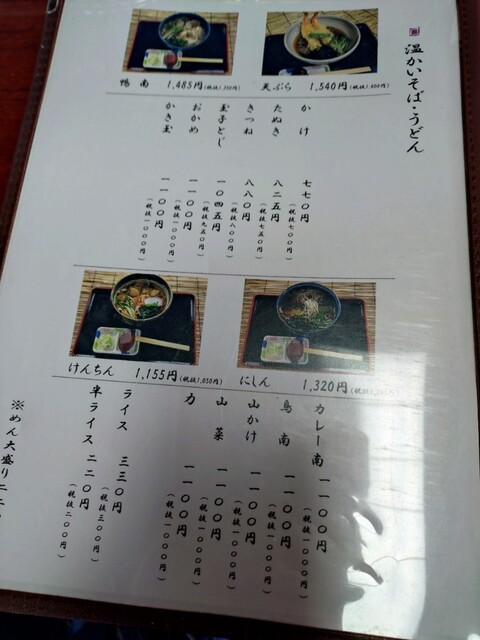 温かいそば・うどん
天ぷら 1,540円(税抜1,400円)
鴨南 1,485円(税抜1,350円)
かけ 七七〇円(税抜七〇〇円)
たぬき 八二五円(税抜七五〇円)
きつね 八八〇円(税抜八〇〇円)
玉子とじ 一〇四五円(税抜九五〇円)
おかめ 一一〇〇円(税抜一〇〇〇円)
かき玉 一一〇〇円(税抜一〇〇〇円)
にしん 1,320円
けんちん 1,155円(税抜1,050円)
カレー南 一一〇〇円(税抜一〇〇〇円)
鳥南 一一〇〇円(税抜一〇〇〇円)
山かけ 一一〇〇円(税抜一〇〇〇円)
山菜 一一〇〇円(税抜一〇〇〇円)
力 一一〇〇円(税抜一〇〇〇円)
ライス 三三〇円(税抜三〇〇円)
半ライス 二二〇円(税抜二〇〇円)
※めん大盛り二二〇